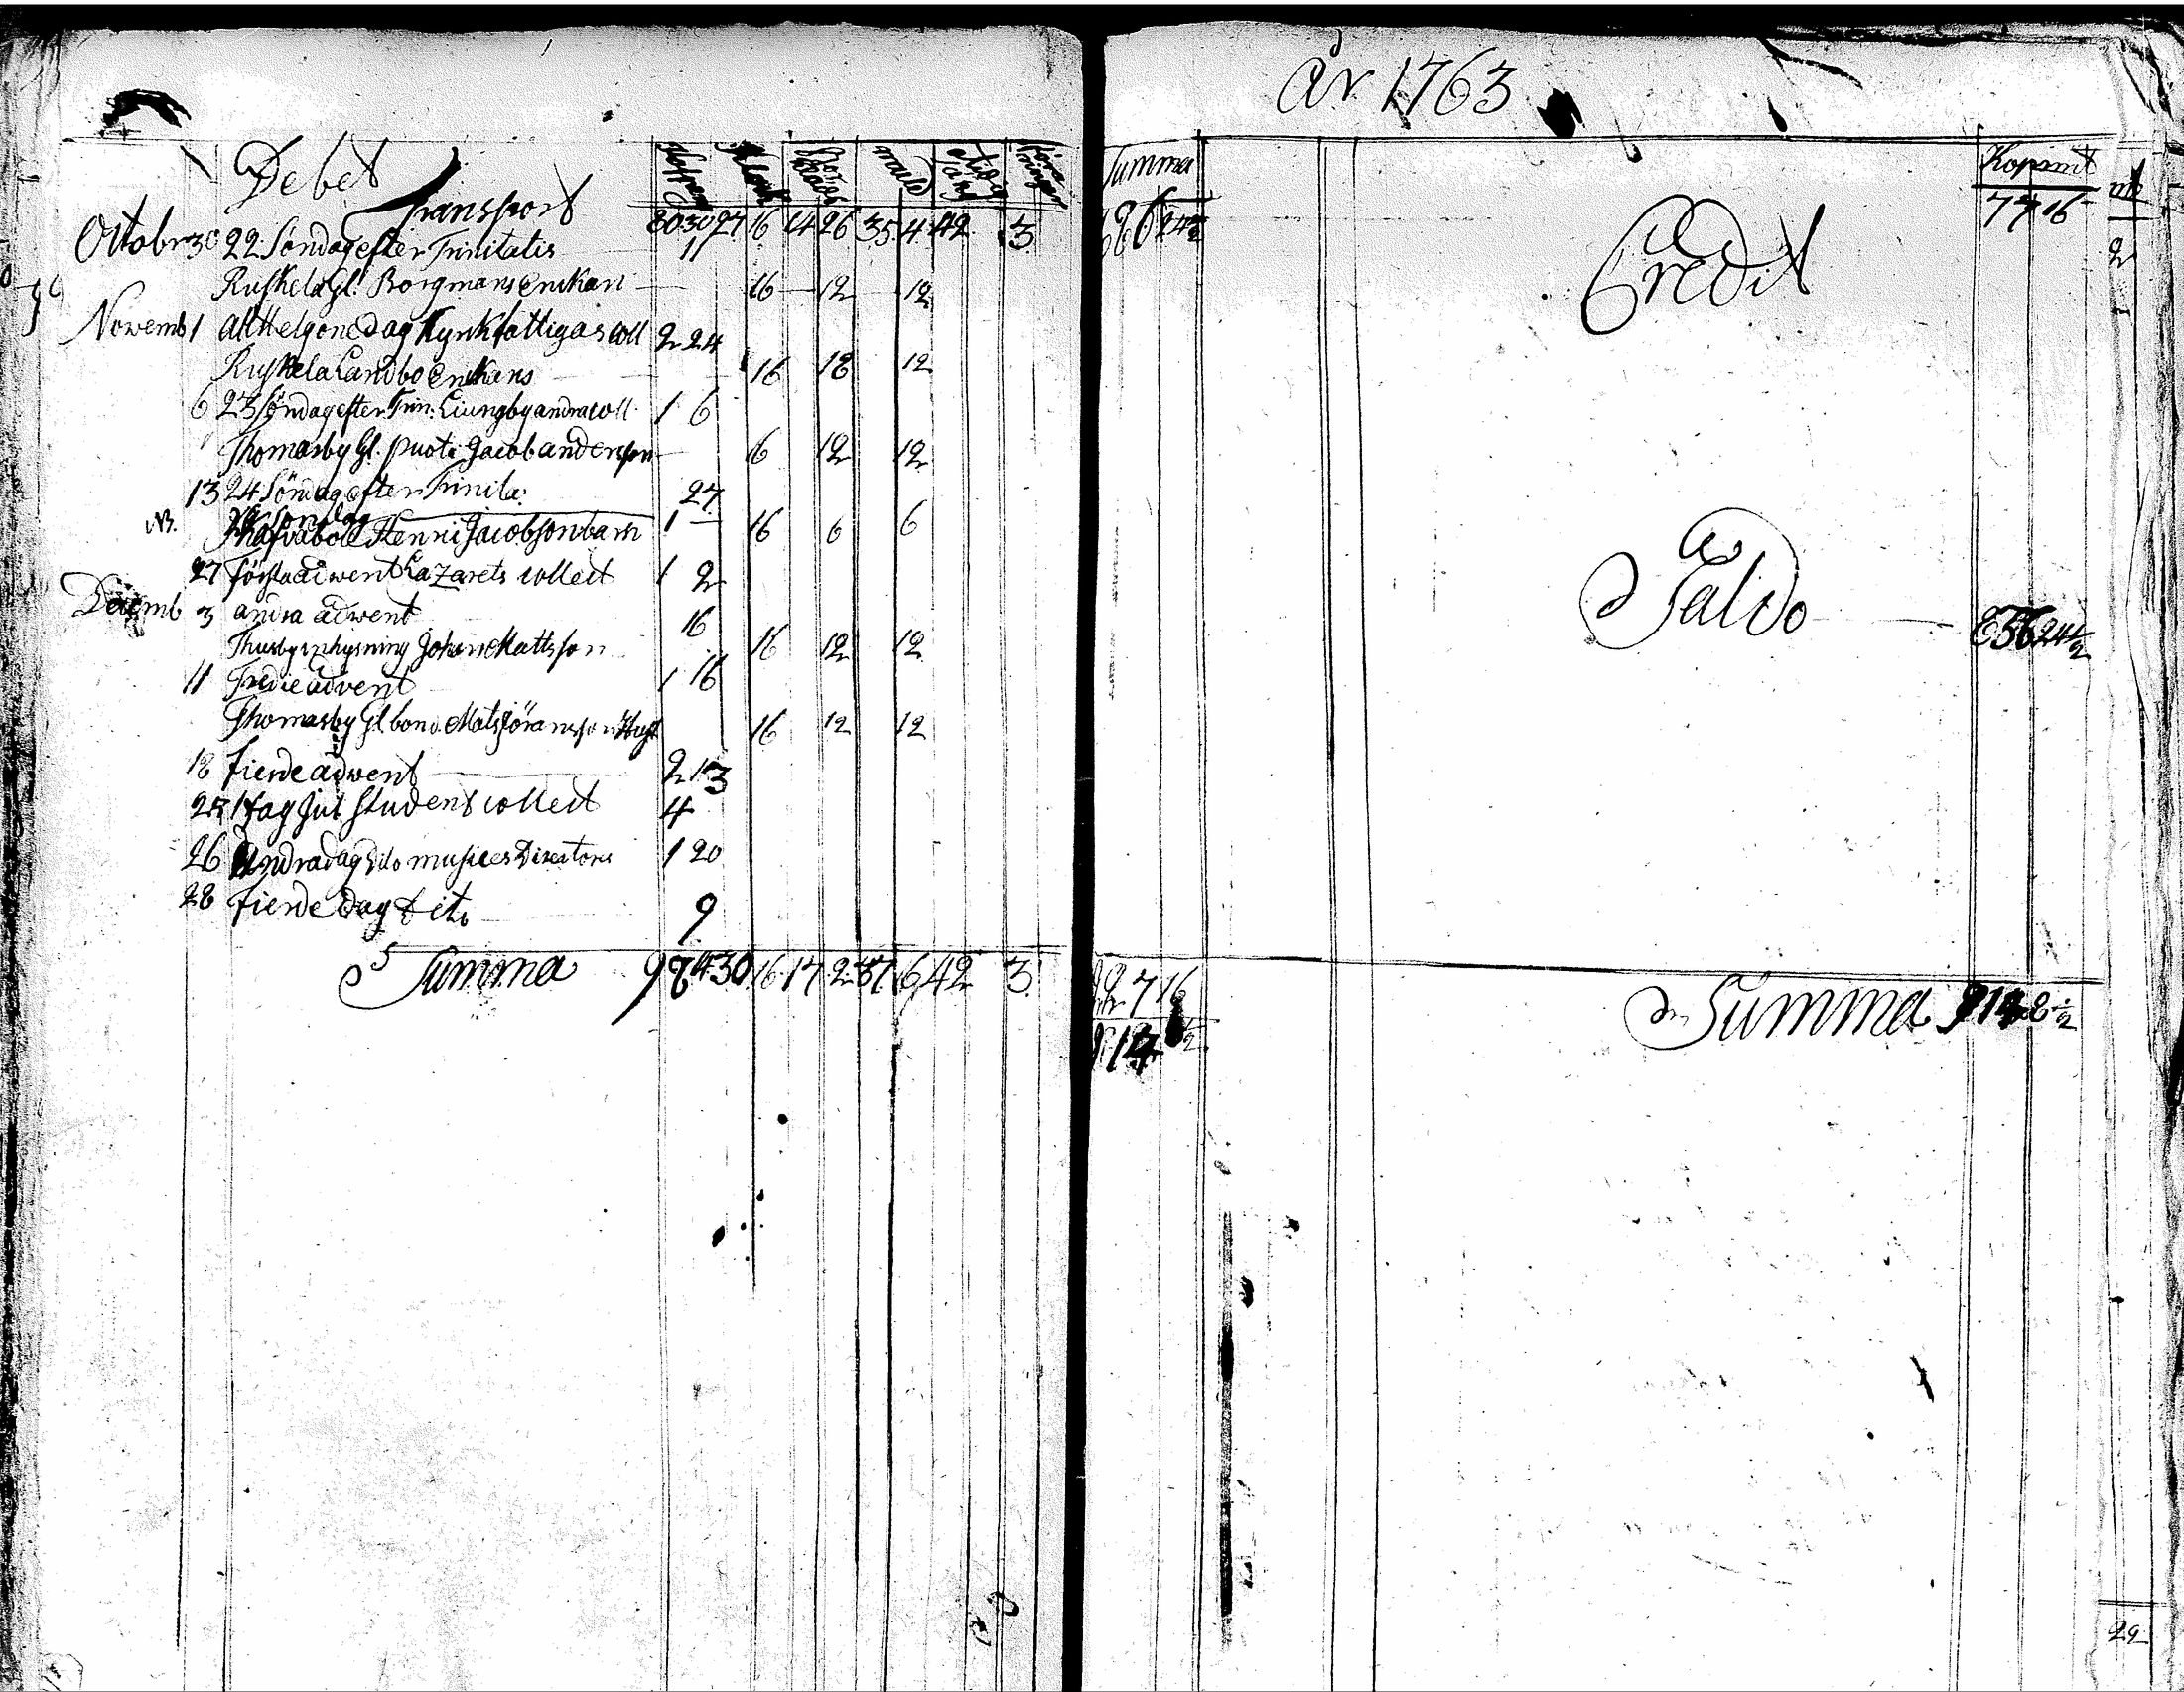 År 1763
Debet
Transport 80 30 27 16 14 26 35 4 42 3
Octobr 30 22 Söndag efter Trinitatis 11
Ruskela Gl. Borgmans Enkan 16 12 12
Novemb 1 allHelgonedag Kyrkfattigas coll 2 24
Ruskela Landbo Enkans 16 18 12
6 23 Söndag efter Trin: Liungby andra coll 1 6
Thomasby Gl. Jacob anderson 16 12 12
13 24 Söndag efter Trinita: 27
NB. Henri Jacobson barn 1 16 6 6
27 första adwent Lazarets collect 1 2
Decemb 3 andra adwent 16
Johan Mattsson 16 12 12
11 Tredie advent 1 16
Thomasby Gl bond. Mats Jöransson 16 12 12
18 fierde adwent 2 13
25 1 dag Jul Student collect 4
26 Andradag dito musices Directors 1 20
28 fierde Dag dito 9
Summa 98 4 30 16 17 2 37 6 42 3
Summa
24½
7 16
Kopmt
77 16
Credit
Saldo
24½
Summa 914 8½
29